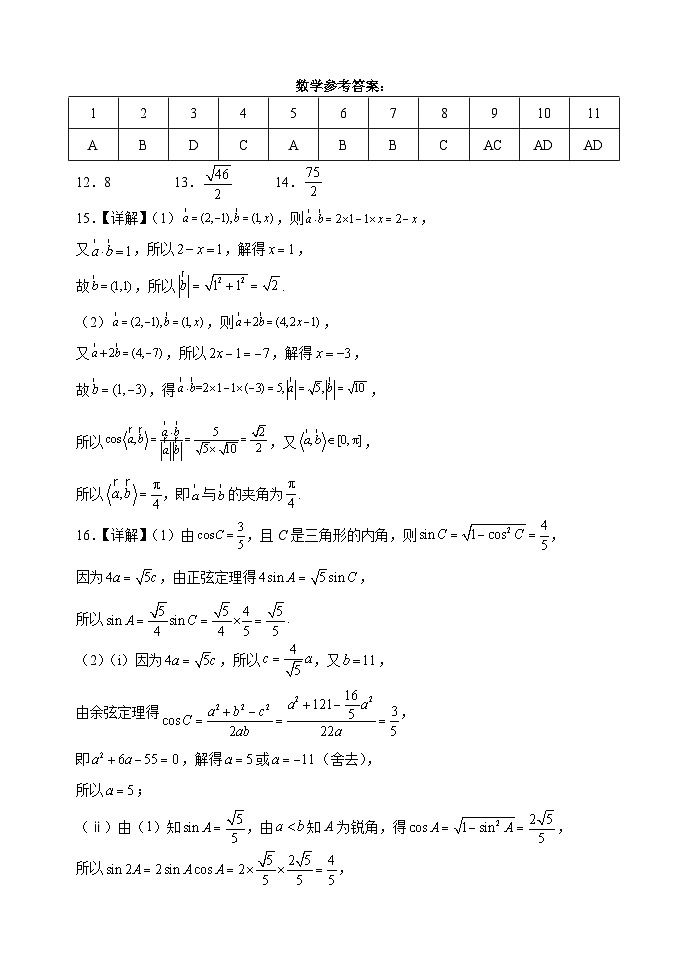 数学参考答案：
1 2 3 4 5 6 7 8 9 10 11
A B D C A B B C AC AD AD
12．8 13．√46/2 14．75/2
15．【详解】（1）a⃗=(2,−1),b⃗=(1,x)，则a⃗·b⃗=2×1−1×x=2−x，
又a⃗·b⃗=1，所以2−x=1，解得x=1，
故b⃗=(1,1)，所以|b⃗|=√(1²+1²)=√2．
（2）a⃗=(2,−1),b⃗=(1,x)，则a⃗+2b⃗=(4,2x−1)，
又a⃗+2b⃗=(4,−7)，所以2x−1=−7，解得x=−3，
故b⃗=(1,−3)，得a⃗·b⃗=2×1−1×(−3)=5,|a⃗|=√5,|b⃗|=√10，
所以cos⟨a⃗,b⃗⟩=a⃗·b⃗/(|a⃗||b⃗|)=5/(√5×√10)=√2/2，又⟨a⃗,b⃗⟩∈[0,π]，
所以⟨a⃗,b⃗⟩=π/4，即a⃗与b⃗的夹角为π/4．
16．【详解】（1）由cosC=3/5，且C是三角形的内角，则sinC=√(1−cos²C)=4/5，
因为4a=√5c，由正弦定理得4sinA=√5sinC，
所以sinA=√5/4sinC=√5/4×4/5=√5/5．
（2）（i）因为4a=√5c，所以c=4/√5a，又b=11，
由余弦定理得cosC=(a²+b²−c²)/2ab=(a²+121−16/5a²)/22a=3/5，
即a²+6a−55=0，解得a=5或a=−11（舍去），
所以a=5；
（ⅱ）由（1）知sinA=√5/5，由a<b知A为锐角，得cosA=√(1−sin²A)=2√5/5，
所以sin2A=2sinAcosA=2×√5/5×2√5/5=4/5，